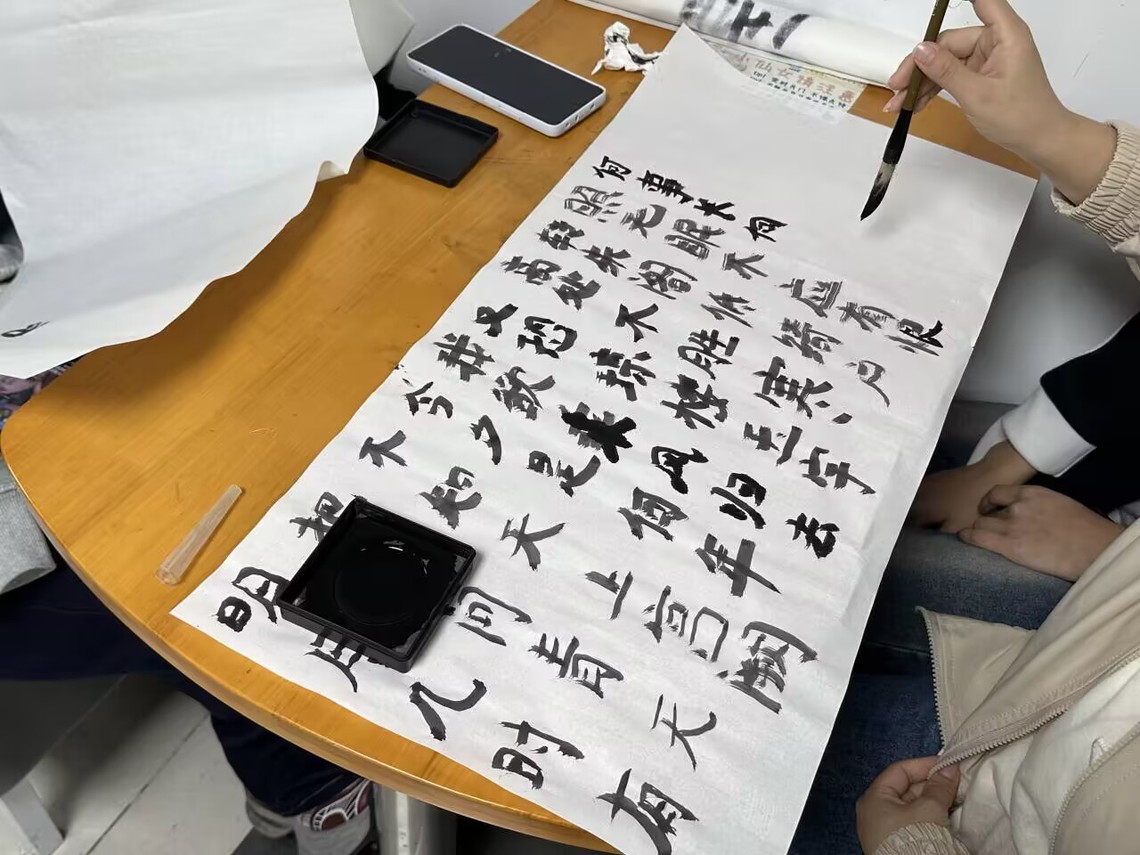 明月几时有
把问青天
不知天上宫阙
今夕是何年
我欲乘风归去
又恐琼楼玉宇
高处不胜寒
转朱阁低绮户
照无眠不应有恨
何事长向
小仙女请注意